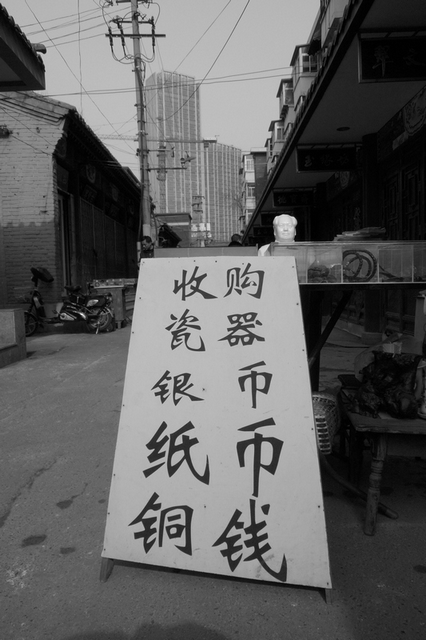 收购
瓷器
银币
纸币
铜钱